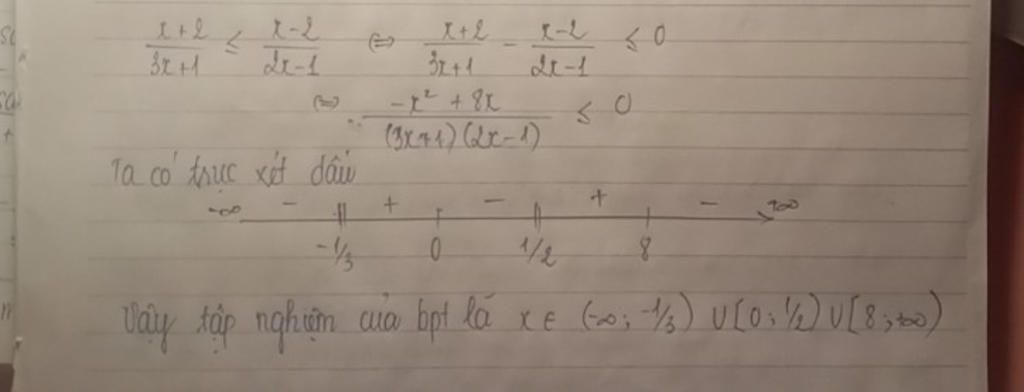 (x+2)/(3x+1) ≤ (x-2)/(2x-1) ⇔ (x+2)/(3x+1) - (x-2)/(2x-1) ≤ 0
⇔ (-x² + 8x)/((3x+1)(2x-1)) ≤ 0
Ta có trục xét dấu
-∞ - + - + - +∞
-1/3 0 1/2 8
Vậy tập nghiệm của bpt là x ∈ (-∞; -1/3) ∪ [0; 1/2) ∪ [8; +∞)